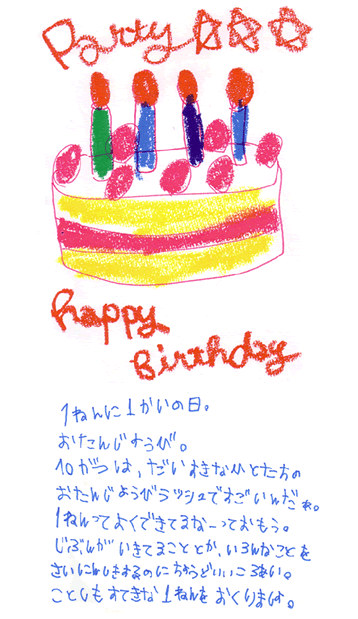 Party☆☆☆
happy
Birthday
1ねんに1かいの日。
おたんじょうび。
10がつは、だいすきなひとたちの
おたんじょうびラッシュですごいんだね。
1ねんってよくできてるなーっておもう。
じぶんがいきてることとか、いろんなことを
さいにんしきするのにちょうどいいころあい。
ことしもすてきな1ねんをおくります。